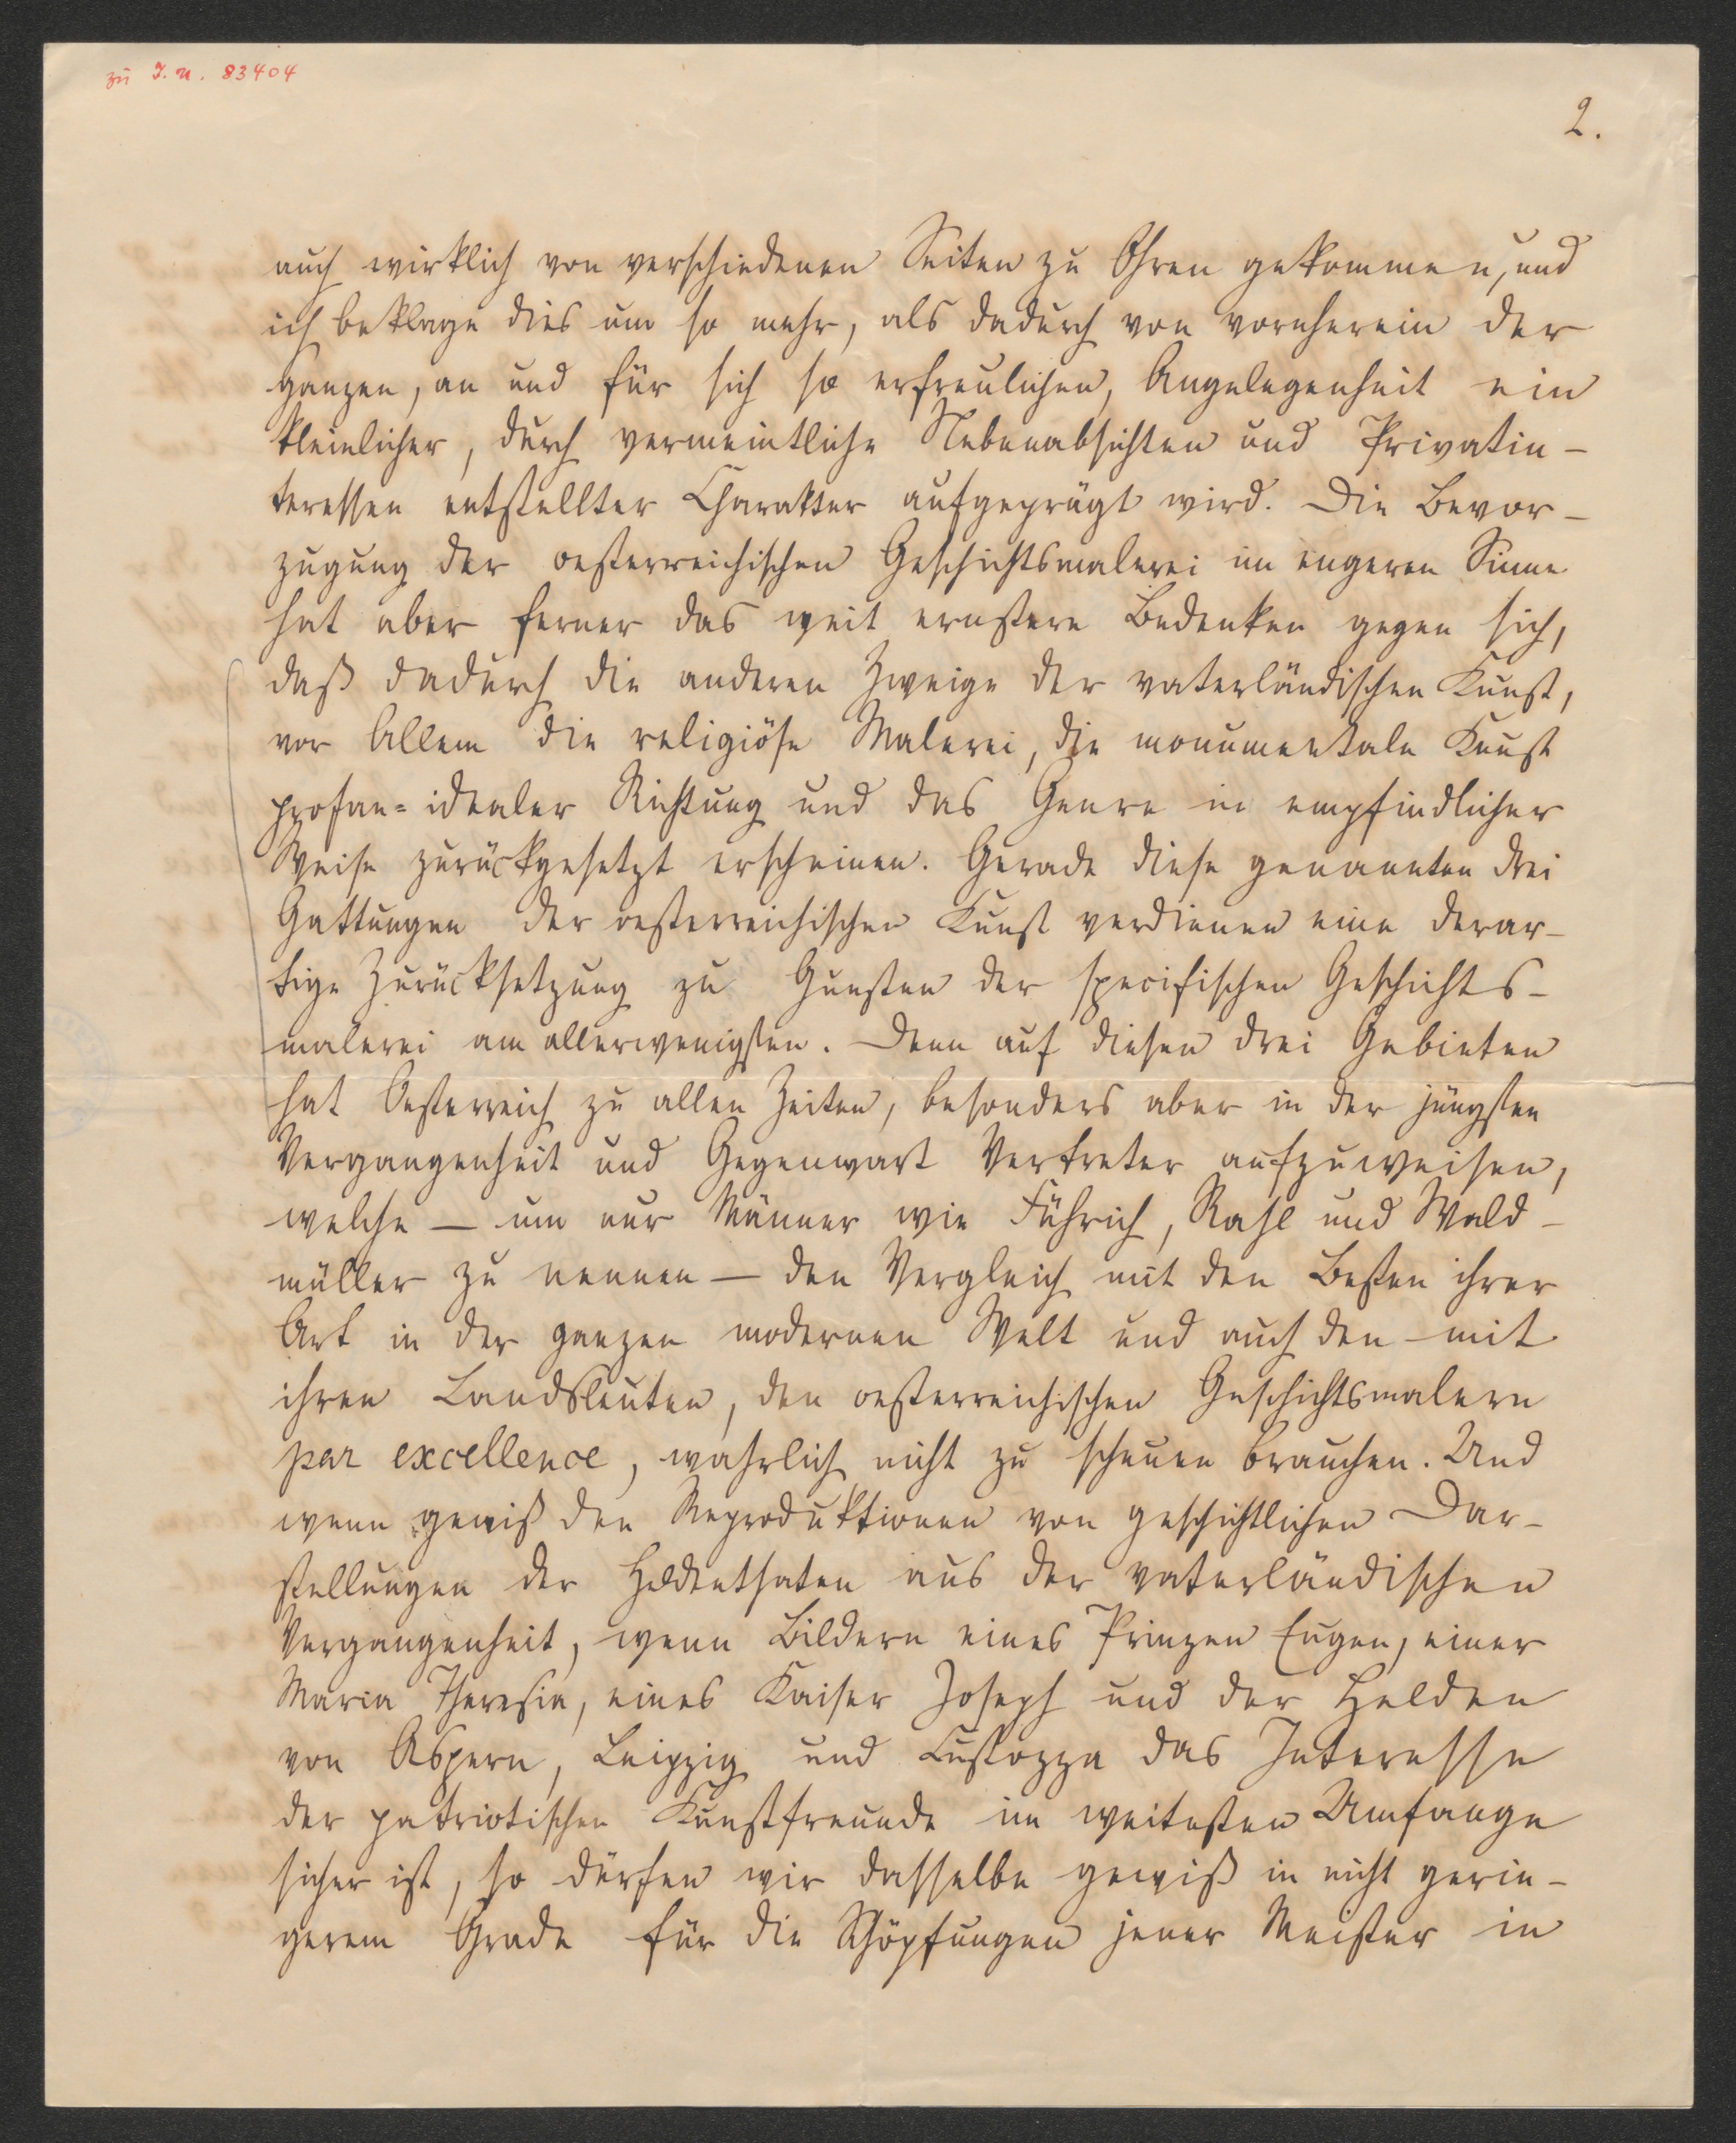 zu I. N. 83404
2.
auch wirklich von verschiedenen Seiten zu Ohren gekommen, und
ich beklage dies um so mehr, als dadurch von vornherein der
ganzen, an und für sich so erfreulichen, Angelegenheit ein
kleinlicher, durch vermeintliche Nebenabsichten und Privatin-
teressen entstellter Charakter aufgeprägt wird. Die Bevor-
zugung der oesterreichischen Geschichtsmalerei im engeren Sinne
hat aber ferner das weit ernstere Bedenken gegen sich,
daß dadurch die anderen Zweige der vaterländischen Kunst,
vor Allem die religiöse Malerei, die monumentale Kunst
profan-idealer Richtung und das Genre in empfindlicher
Weise zurückgesetzt erscheinen. Gerade diese genannten drei
Gattungen der oesterreichischen Kunst verdienen eine derar-
tige Zurücksetzung zu Gunsten der specifischen Geschichts-
malerei am allerwenigsten. Denn auf diesen drei Gebieten
hat Oesterreich zu allen Zeiten, besonders aber in der jüngsten
Vergangenheit und Gegenwart Vertreter aufzuweisen,
welche – um nur Männer wie Führich, Rahl und Wald-
müller zu nennen – den Vergleich mit den Besten ihrer
Art in der ganzen modernen Welt und auch den mit
ihren Landsleuten, den oesterreichischen Geschichtsmalern
par excellence, wahrlich nicht zu scheuen brauchen. Und
wenn gewiß den Reproduktionen von geschichtlichen Dar-
stellungen der Heldenthaten aus der vaterländischen
Vergangenheit, wenn Bildern eines Prinzen Eugen, einer
Maria Theresia, eines Kaiser Joseph und der Helden
von Aspern, Leipzig und Custozza das Interesse
der patriotischen Kunstfreunde im weitesten Umfange
sicher ist, so dürfen wir dasselbe gewiß in nicht gerin-
gerem Grade für die Schöpfungen jener Meister in